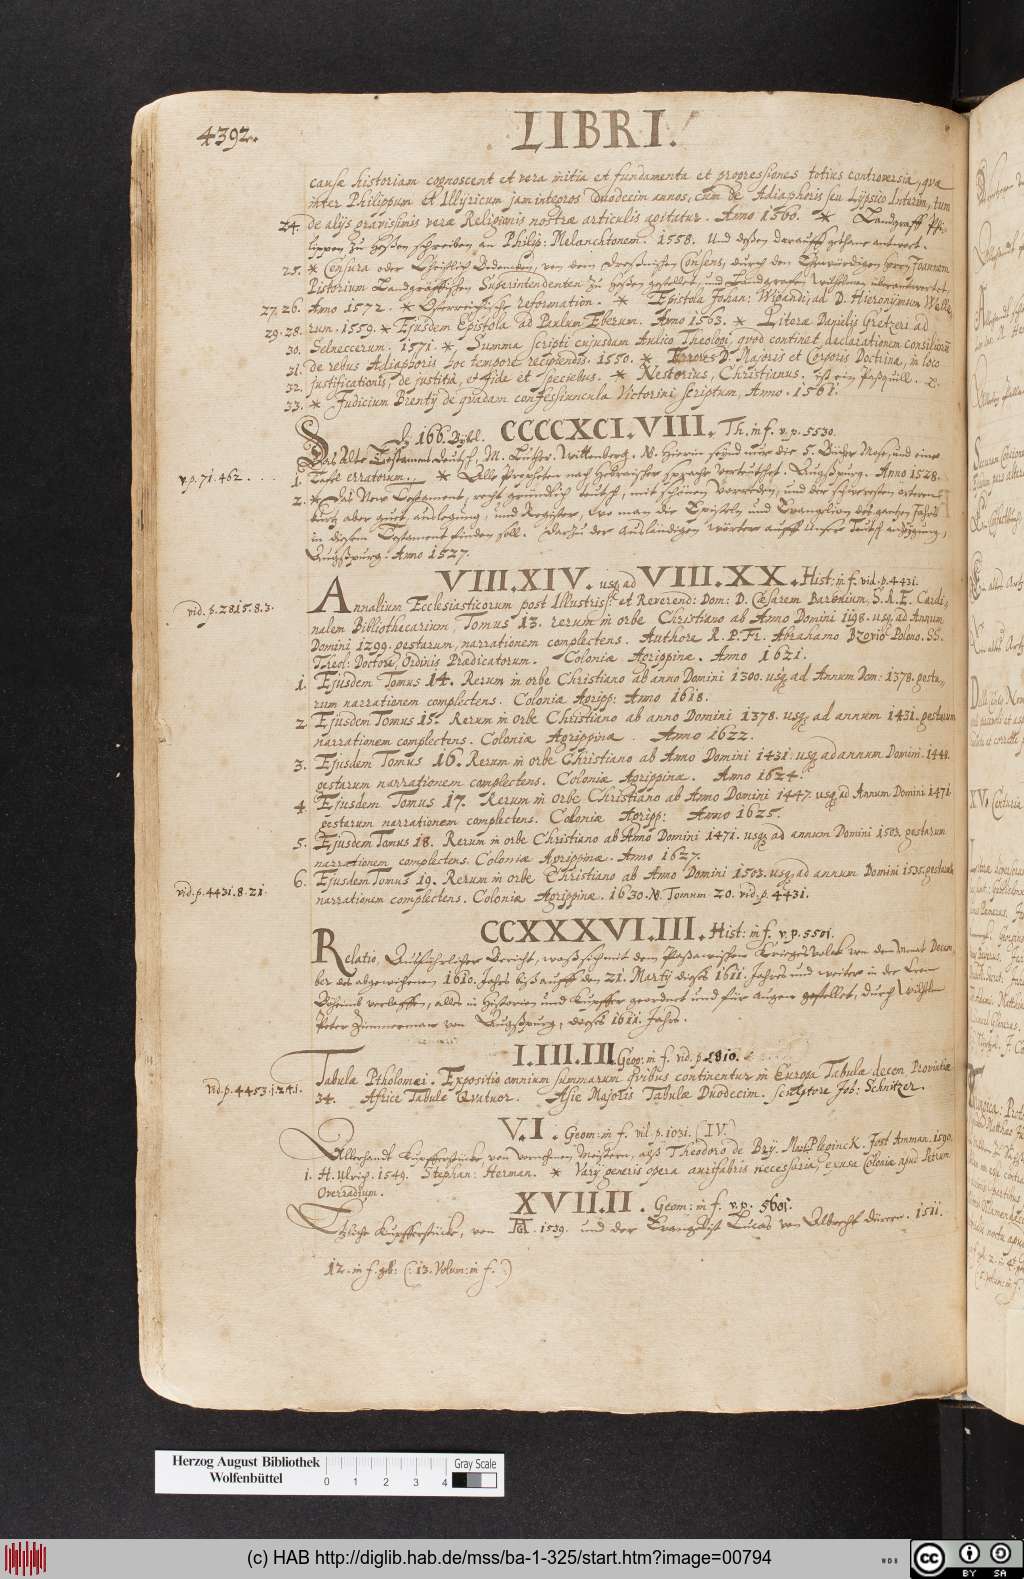 4392.
LIBRI.
causæ historiam cognoscent et vera initia et fundamenta et progressiones totius controversiæ, quæ
inter Philippum et Illyricum jam integros Duodecim annos, cùm de Adiaphoris seu Lypsico Interim, tum
24. de alÿs gravissimis veræ Religionis nostræ articulis agitatur. Anno 1560. * Landgraff Phi-
lippen zu Hessen schreiben an Philip: Melanchtonem. 1558. Und dessen darauff gethane antwort.
25. * Censura oder Christlich Bedencken, von dem Dreßnischen Consens, durch den Ehrwürdigen Herrn Joannem
Pistorium Landgräffischen Superintendenten zu Hessen gestellet, und Landgrafen Wilhelmen überantwortet.
27. 26. Anno 1572. * Osterreichische reformation. * Epistola Johan: Wigandi, ad D. Hieronymum Welle-
29. 28. rum. 1559. * Ejusdem Epistola ad Paulum Eberum. Anno 1563. * Literæ Danielis Gretzeri ad
30. Selneccerum. 1571. * Summa scripti cujusdam Aulico Theologi, quod continet declarationem consiliorum
31. de rebus Adiaphoris hoc tempore recipiendis. 1550. * Errores D. Majoris et Corporis Doctrinæ, in loco
32. justificationis, de justitia, et fide et speciebus. * Nestorius, Christianus. ist ein Paßquill.
33. * Judicium Brentÿ de quadam confessiuncula Victorini scriptum, Anno. 1561.
166. Bibl. CCCCXCI.VIII. Th. in f. v. p. 5530.
Das Alte Testament Deutsch, M. Luther. Wittenberg. N. Hierin seynd nur die 5. Bücher Mosis, und eine
v. p. 71. 462. . . . .
1. Tafel erratorum. * Alle Propheten nach Hebraischer sprache verteutschet. Augßpurg. Anno 1528.
2. * Das New Testament, recht gründlich teutscht, mit schönen Vorreden, und der schweresten örteren
kurtz aber gut, außlegung, und Register, wo man die Episteln und Evangelien des gantzen Jahrs
in diesem Testament finden soll. Darzu der ausländigen wörter auff Unser Teutsch anzeygung,
Augßpurg. Anno 1527.
VIII.XIV. usq ad VIII.XX. Hist: in f. vid. p. 4431.
vid. p. 2815. 8. 3.
Annalium Ecclesiasticorum post Illustriss: et Reverend: Dom: D. Cæsarem Baronium, S.R.E. Cardi-
nalem Bibliothecarium, Tomus 13. rerum in orbe Christiano ab Anno Domini 1198. usq ad Annum
Domini 1299. gestarum, narrationem complectens. Authore R. P. Fr. Abrahamo Bzovio Polono. SS.
Theol: Doctore, Ordinis Prædicatorum. Coloniæ Agrippinæ. Anno 1621.
1. Ejusdem Tomus 14. Rerum in orbe Christiano ab anno Domini 1300. usq ad Annum Dom: 1378. gesta-
rum narrationem complectens. Coloniæ Agripp: Anno 1618.
2. Ejusdem Tomus 15. Rerum in orbe Christiano ab anno Domini 1378. usq ad annum 1431. gestarum
narrationem complectens. Coloniæ Agrippinæ. Anno 1622.
3. Ejusdem Tomus 16. Rerum in orbe Christiano ab Anno Domini 1431. usq ad annum Domini. 1448.
gestarum narrationem complectens. Coloniæ Agrippinæ. Anno 1624.
4. Ejusdem Tomus 17. Rerum in orbe Christiano ab Anno Domini 1447. usq ad Annum Domini 1471.
gestarum narrationem complectens. Coloniæ Agripp: Anno 1625.
5. Ejusdem Tomus 18. Rerum in orbe Christiano ab Anno Domini 1471. usq ad annum Domini 1503. gestarum
narrationem complectens. Coloniæ Agrippinæ. Anno 1627.
vid. p. 4431. 8. 21.
6. Ejusdem Tomus 19. Rerum in orbe Christiano ab Anno Domini 1503. usq ad annum Domini 1535. gestarum
narrationem complectens. Coloniæ Agrippinæ. 1630. N. Tomum 20. vid. p. 4431.
CCXXXVI.III. Hist: in f. v. p. 5501.
Relatio, Außführlicher Bericht, waß sich mit dem Passawischen Kriegs Volck von dem Monat Decem-
ber des abgewichenen 1610. Jahrs biß auff den 21. Martÿ dieses 1611. Jahres und weiter in der Cron
Böheimb verlauffen, alles in Historien und Kupffer geordnet und für augen gestellet, durch Wilhelm
Peter Zimmerman von Augßpurg, dieses 1611. Jahrs.
I.III.III. Geog: in f. vid. p. 1810.
vid. p. 4453. 1. 2. 4. 1.
Tabulæ Ptholomæi. Expositio omnium summarum quibus continentur in Europa Tabulæ decem, Provintiæ
34. Africe Tabule Quatuor. Asie Majoris Tabulæ Duodecim. sculptore Joh: Schnitzer.
V.I. Geom: in f. vil. p. 1031. (IV.)
Allerhandt Kupfferstücke, von vornehmen Meistern, alß Theodoro de Bry. Mart. Pleginck. Jost Amman. 1590.
1. H. Ulrich. 1549. Stephan: Herman. * Varÿ generis opera aurifabris necessaria, excusæ Coloniæ apud Petrum
Overradium.
XVII.II. Geom: in f. v. p. 5601.
Etzliche Kupfferstücke, von 1539. und der Evangelist Lucas von Albrecht Dürern. 1511.
12. in f. geb: (: 13. Volum: in f. :)
Herzog August Bibliothek
Wolfenbüttel
0 1 2 3 4
Gray Scale
(c) HAB http://diglib.hab.de/mss/ba-1-325/start.htm?image=00794
WDB
cc BY SA